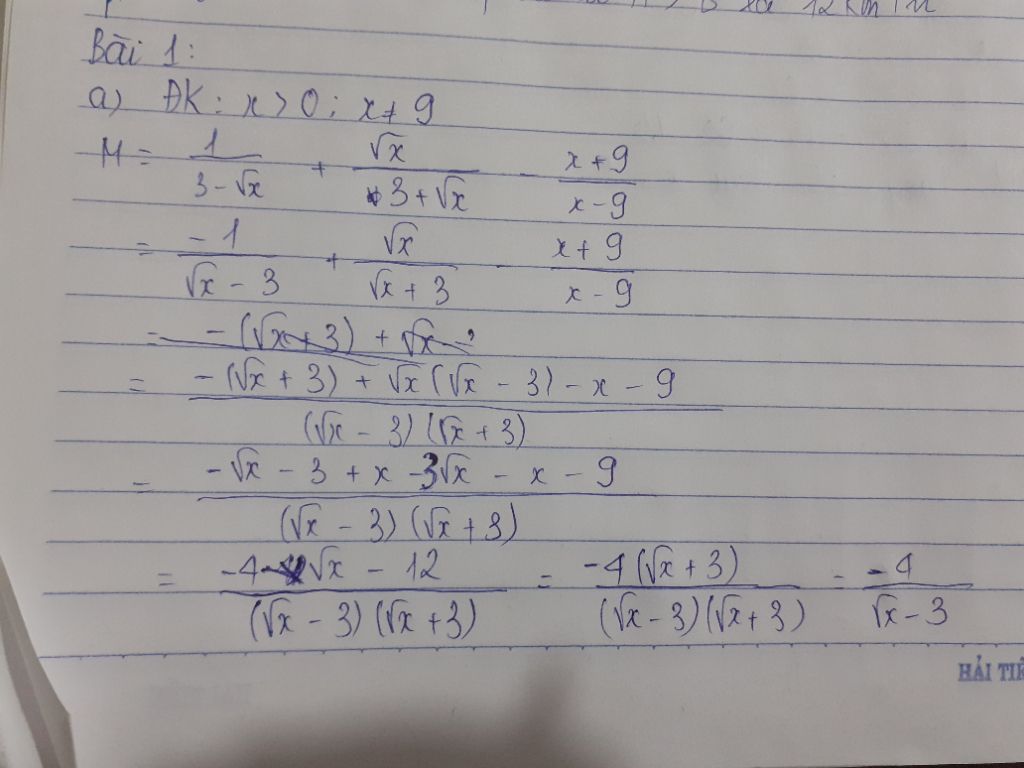 12 km/h
Bài 1:
a) ĐK: x > 0; x ≠ 9
M = 1/(3 - √x) + √x/(3 + √x) - (x + 9)/(x - 9)
= -1/(√x - 3) + √x/(√x + 3) - (x + 9)/(x - 9)
= -(√x + 3) + √x -
= (-(√x + 3) + √x(√x - 3) - x - 9)/((√x - 3)(√x + 3))
= (-√x - 3 + x - 3√x - x - 9)/((√x - 3)(√x + 3))
= (-4√x - 12)/((√x - 3)(√x + 3)) = -4(√x + 3)/((√x - 3)(√x + 3)) = -4/(√x - 3)
HẢI TIẾ